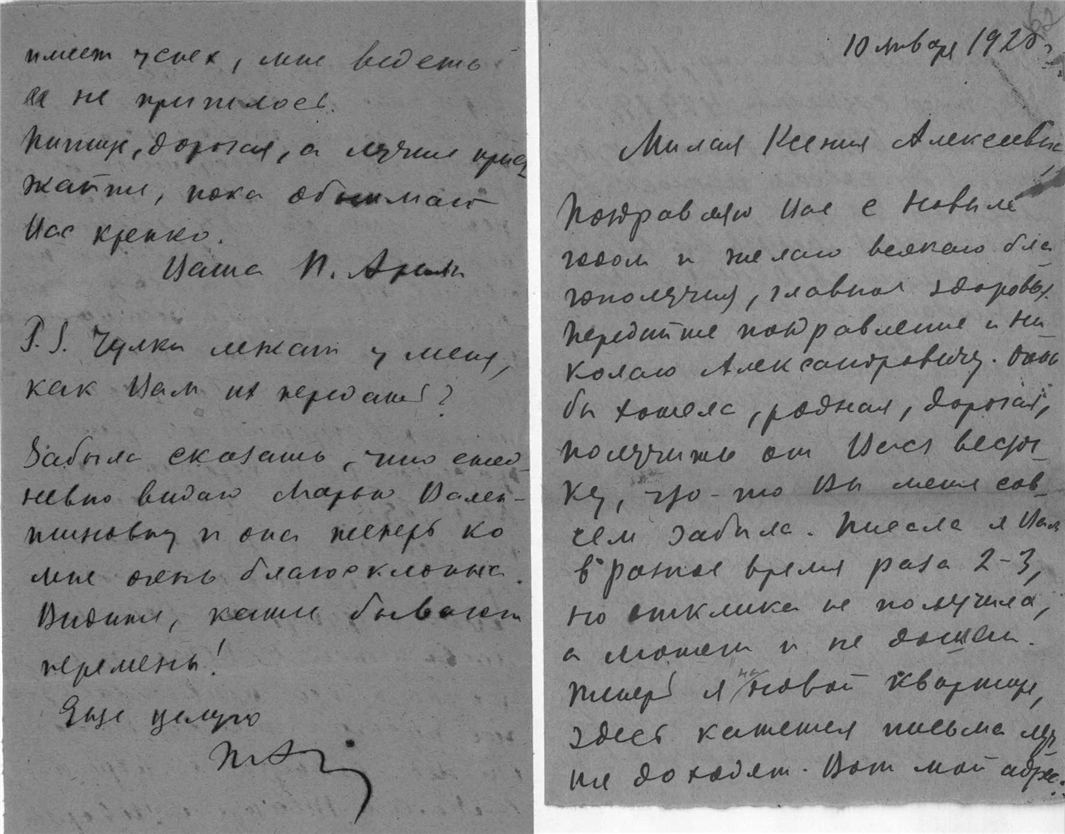 имеет успех, мне видеть
ее не пришлось.
Пишите, дорогая, а лучше приез
жайте, пока обнимаю
Вас крепко.
Ваша Н.
P.S. Чулки лежат у меня,
как Вам их передать?
Забыла сказать, что ежед-
невно видаю Марью Вален-
тиновну и она теперь ко
мне очень благосклонна.
Видите, какие бывают
перемены!
Еще целую
10 января 1920 г.
Милая Ксения Алексеевна
Поздравляю Вас с Новым
годом и желаю всякого бла
гополучия, главное здоровья.
Передайте поздравление и Ни
колаю Александровичу.
бы хотела, родная, дорогая,
получить от Вас весто-
чку, что-то Вы меня сов-
сем забыли. Писала я Вам
в разное время раза 2-3,
но отклика не получила,
а может и не дошли.
Теперь я на новой квартире,
здесь кажется письма луч
ше доходят. Вот мой адрес: